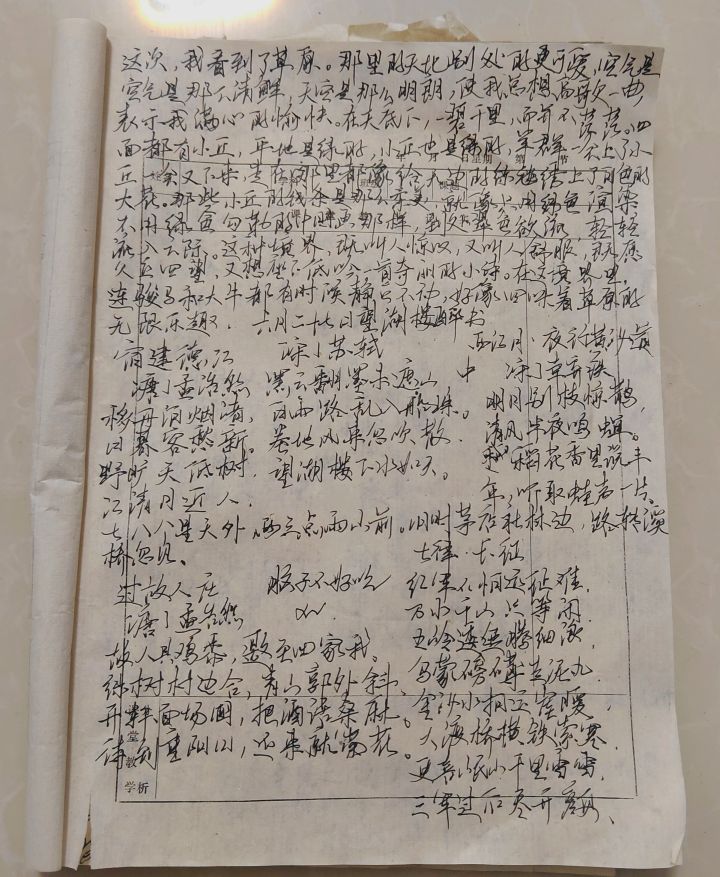 这次,我看到了草原。那里的天比别处的更可爱,空气是
空气是那么清鲜,天空是那么明朗,使我总想高歌一曲,
表示我满心的愉快。在天底下,一碧千里,而并不茫茫。四
面都有小丘,平地是绿的,小丘也是绿的,羊群一会上了小
丘一会又下来,走在哪里都像给无边的绿毯绣上了白色的
大花。那些小丘的线条是那么柔美,就像只用绿色渲染
不用绿色勾勒的中国画那样,到处翠色欲流,轻轻
流入云际。这种境界,既叫人惊叹,又叫人舒服,既愿
久立四望,又想坐下低吟一首奇丽的小诗。在这境界里,
连骏马和大牛都有时候静立不动,好像回味着草原的
无限乐趣. 六月二十七日望湖楼醉书
宿建德江
唐丨孟浩然
移舟泊烟渚,
日暮客愁新。
野旷天低树,
江清月近人.
宋丨苏轼
黑云翻墨未遮山
白雨跳珠乱入船.
卷地风来忽吹散.
望湖楼下水如天。
西江月 夜行黄沙道
中 宋丨辛弃疾
明月别枝惊鹊,
清风半夜鸣蝉。
稻花香里说丰
年,听取蛙声一片。
七八个星天外,两三点雨山前。旧时茅店社林边,路转溪
桥忽见。
过故人庄
唐丨孟浩然
故人具鸡黍,邀至田家我。
绿树村边合,青山郭外斜.
开轩面场圃,把酒话桑麻。
待到重阳日,还来就菊花.
猴子不好吃
七律·长征
红军不怕远征难,
万水千山只等闲.
五岭逶迤腾细浪,
乌蒙磅礴走泥丸.
金沙水拍云崖暖,
大渡桥横铁索寒.
更喜岷山千里雪,
三军过后尽开颜、
堂
教
学析
星期
第
节